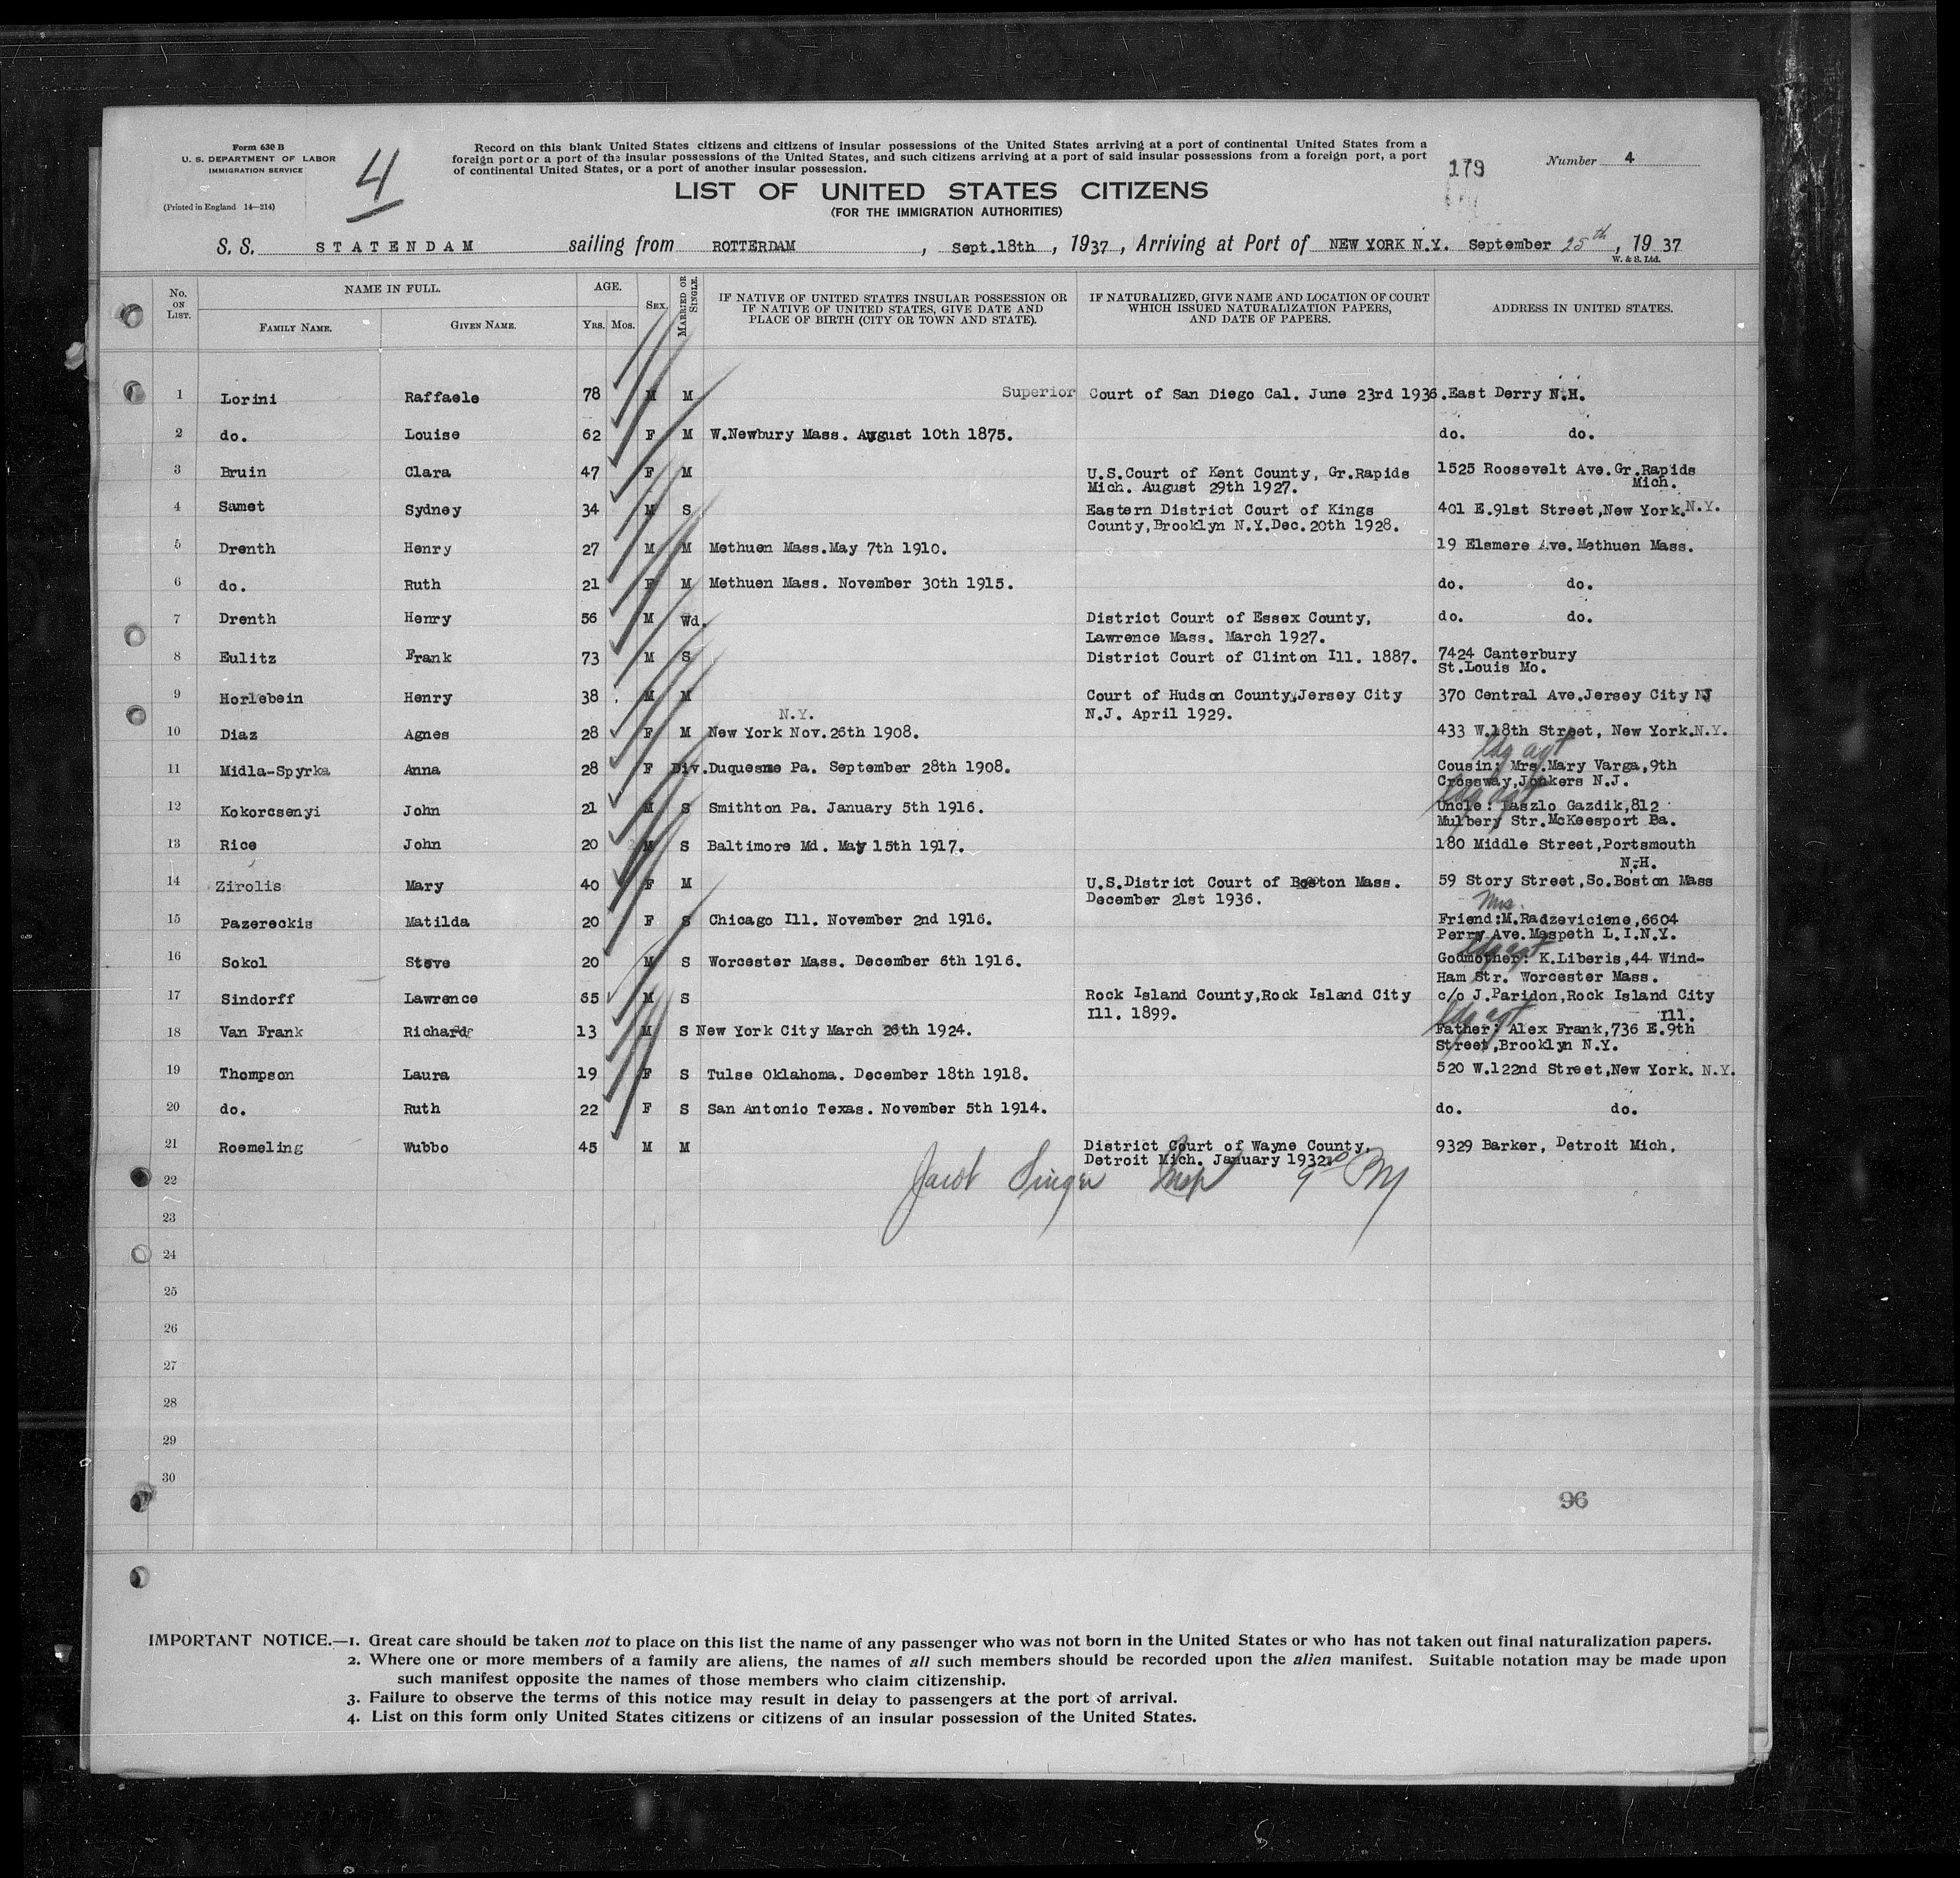 Form 630 B
U. S. DEPARTMENT OF LABOR
IMMIGRATION SERVICE
(Printed in England 14—214)
4
Record on this blank United States citizens and citizens of insular possessions of the United States arriving at a port of continental United States from a
foreign port or a port of the insular possessions of the United States, and such citizens arriving at a port of said insular possessions from a foreign port, a port
of continental United States, or a port of another insular possession.
179
Number 4
LIST OF UNITED STATES CITIZENS
(FOR THE IMMIGRATION AUTHORITIES)
S. S. STATENDAM sailing from ROTTERDAM, Sept.18th, 1937, Arriving at Port of NEW YORK N.Y. September 25th, 1937
W. & S. Ltd.
No. ON LIST. NAME IN FULL. FAMILY NAME. GIVEN NAME. AGE. Yrs. Mos. SEX. MARRIED OR SINGLE. IF NATIVE OF UNITED STATES INSULAR POSSESSION OR IF NATIVE OF UNITED STATES, GIVE DATE AND PLACE OF BIRTH (CITY OR TOWN AND STATE). IF NATURALIZED, GIVE NAME AND LOCATION OF COURT WHICH ISSUED NATURALIZATION PAPERS, AND DATE OF PAPERS. ADDRESS IN UNITED STATES.
1 Lorini Raffaele 78 M M Superior Court of San Diego Cal. June 23rd 1936. East Derry N.H.
2 do. Louise 62 F M W.Newbury Mass. August 10th 1875. do. do.
3 Bruin Clara 47 F M U.S.Court of Kent County, Gr.Rapids 1525 Roosevelt Ave.Gr.Rapids
Mich. August 29th 1927. Mich.
4 Samet Sydney 34 M S Eastern District Court of Kings 401 E.91st Street,New York.N.Y.
County,Brooklyn N.Y.Dec.20th 1928.
5 Drenth Henry 27 M M Methuen Mass.May 7th 1910. 19 Elsmere Ave.Methuen Mass.
6 do. Ruth 21 F M Methuen Mass. November 30th 1915. do. do.
7 Drenth Henry 56 M Wd. District Court of Essex County, do. do.
Lawrence Mass. March 1927.
8 Eulitz Frank 73 M S District Court of Clinton Ill. 1887. 7424 Canterbury
St.Louis Mo.
9 Horlebein Henry 38 M M Court of Hudson County,Jersey City 370 Central Ave.Jersey City NJ
N.J. April 1929.
N.Y.
10 Diaz Agnes 28 F M New York Nov.26th 1908. 433 W.18th Street, New York.N.Y.
ldg agt
11 Midla-Spyrka Anna 28 F Div. Duquesne Pa. September 28th 1908. Cousin: Mrs.Mary Varga,9th
Crossway,Jonkers N.J.
ldg agt
12 Kokorcsenyi John 21 M S Smithton Pa. January 5th 1916. Uncle: Laszlo Gazdik,812
Mulbery Str.McKeesport Pa.
13 Rice John 20 M S Baltimore Md. May 15th 1917. 180 Middle Street,Portsmouth
N.H.
14 Zirolis Mary 40 F M U.S.District Court of Boston Mass. 59 Story Street,So.Boston Mass
December 21st 1936.
Mrs.
15 Pazereckis Matilda 20 F S Chicago Ill. November 2nd 1916. Friend:M.Radzeviciene,6604
Perry Ave.Maspeth L.I.N.Y.
ldg agt
16 Sokol Steve 20 M S Worcester Mass. December 6th 1916. Godmother: K.Liberis,44 Wind-
Ham Str. Worcester Mass.
17 Sindorff Lawrence 65 M S Rock Island County,Rock Island City c/o J.Paridon,Rock Island City
Ill. 1899. Ill.
ldg agt
18 Van Frank Richard 13 M S New York City March 26th 1924. Father: Alex Frank,736 E.9th
Street,Brooklyn N.Y.
19 Thompson Laura 19 F S Tulse Oklahoma. December 18th 1918. 520 W.122nd Street,New York. N.Y.
20 do. Ruth 22 F S San Antonio Texas. November 5th 1914. do. do.
21 Roemeling Wubbo 45 M M District Court of Wayne County, 9329 Barker, Detroit Mich.
Detroit Mich. January 1932.
22 Jacob Singer Insp
23
24
25
26
27
28
29
30
96
IMPORTANT NOTICE.—1. Great care should be taken not to place on this list the name of any passenger who was not born in the United States or who has not taken out final naturalization papers.
2. Where one or more members of a family are aliens, the names of all such members should be recorded upon the alien manifest. Suitable notation may be made upon
such manifest opposite the names of those members who claim citizenship.
3. Failure to observe the terms of this notice may result in delay to passengers at the port of arrival.
4. List on this form only United States citizens or citizens of an insular possession of the United States.